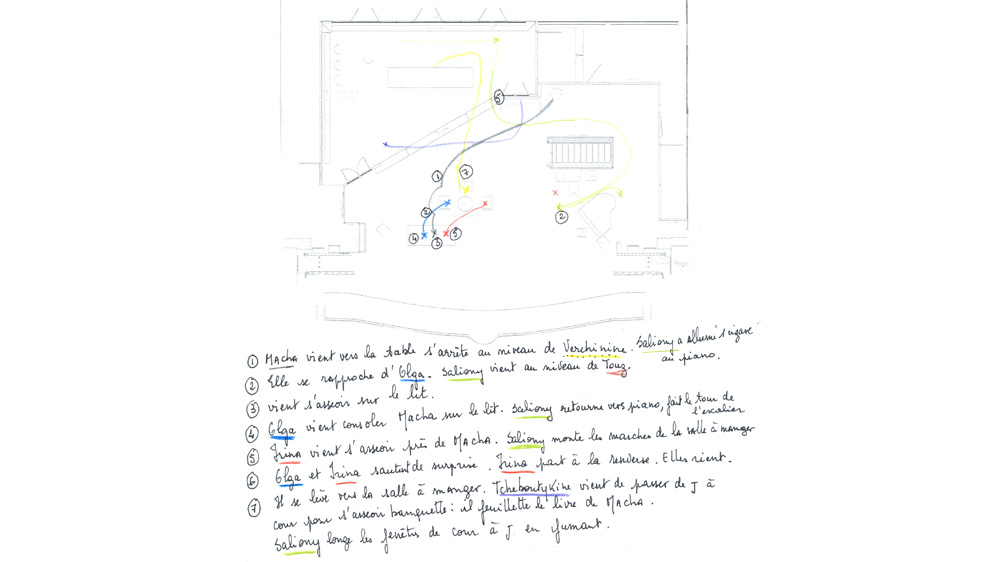 5
1
7
2
2
4
3
5
① Macha vient vers la table s'arrête au niveau de Verchinine. Saliony a allumé 1 cigare
au piano.
② Elle se rapproche d'Olga. Saliony vient au niveau de Touz.
③ vient s'asseoir sur le lit.
④ Olga vient consoler Macha sur le lit. Saliony retourne vers piano, fait le tour de
l'escalier
⑤ Irina vient s'asseoir près de Macha. Saliony monte les marches de la salle à manger
⑥ Olga et Irina sautent de surprise. Irina part à la renverse. Elles rient.
⑦ Il se lève vers la salle à manger. Tcheboutykine vient de passer de J à
cour pour s'asseoir banquette : il feuillette le livre de Macha.
Saliony longe les fenêtres de cour à J en fumant.